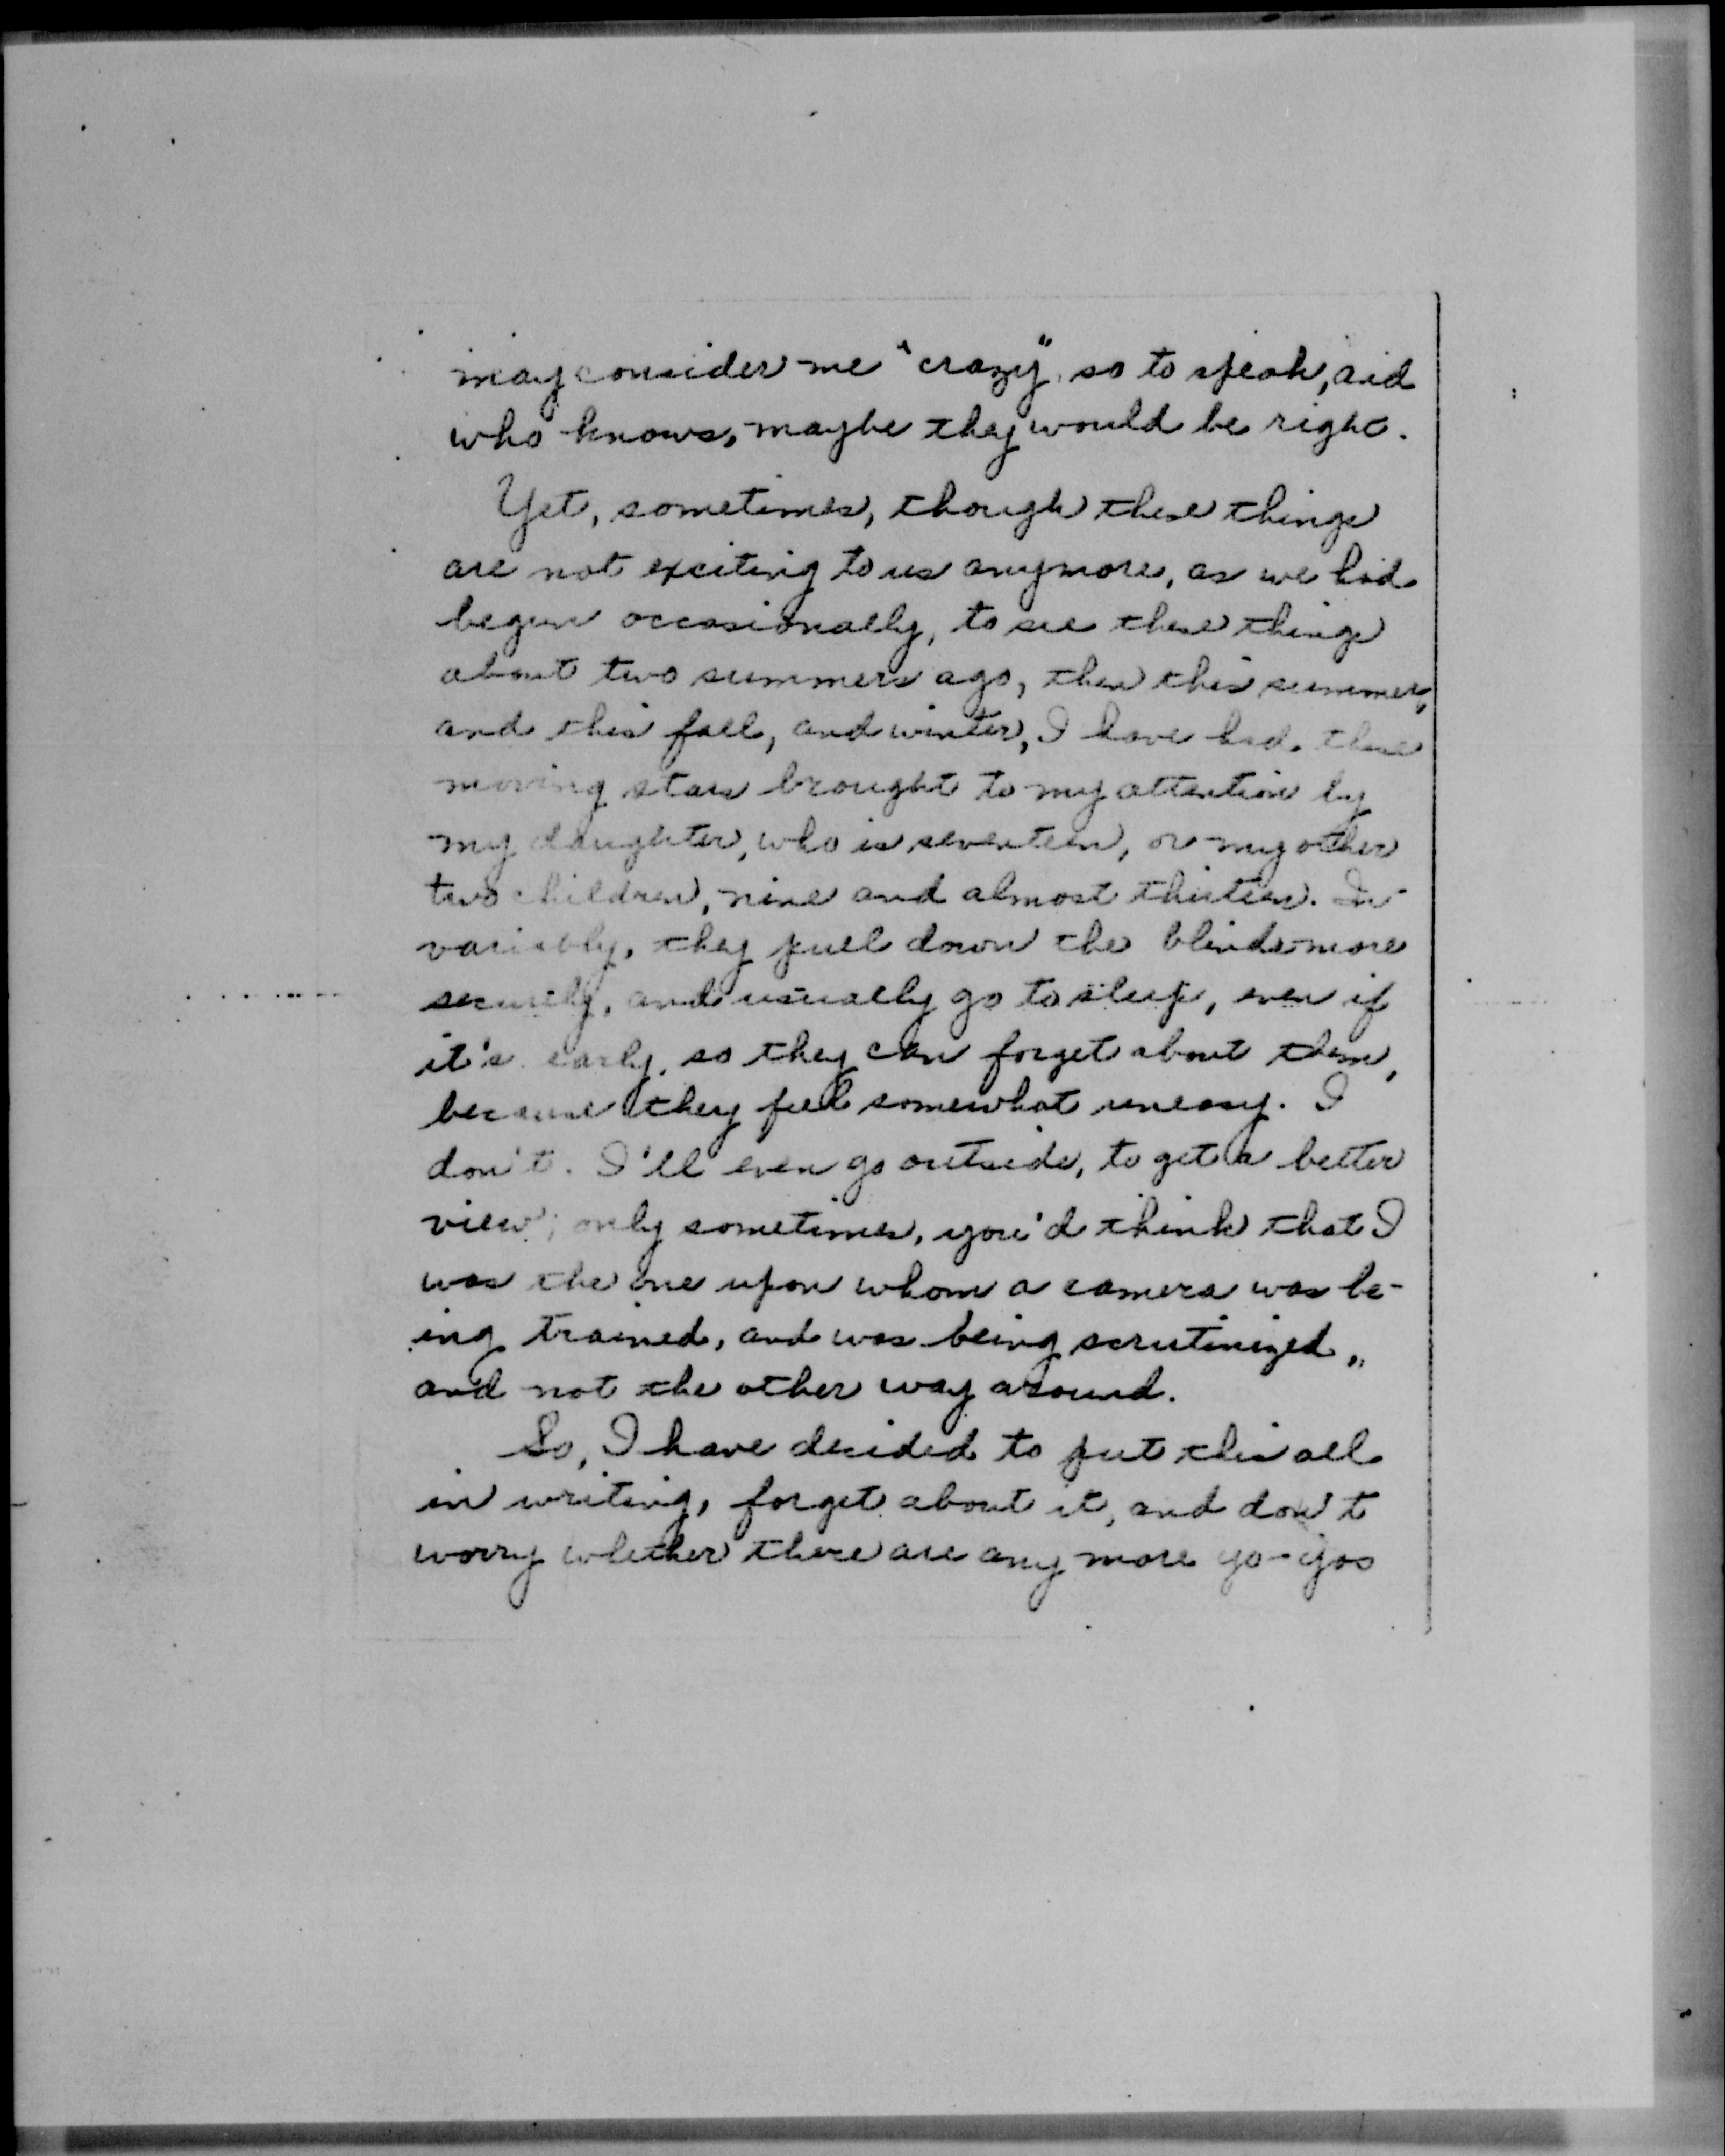 may consider me "crazy", so to speak, and
who knows, maybe they would be right.
Yet, sometimes, though these things
are not exciting to us anymore, as we had
begun occasionally, to see these things
about two summers ago, then this summer,
and this fall, and winter, I have had these
moving stars brought to my attention by
my daughter, who is seventeen, or my other
two children, nine and almost thirteen. In-
variably, they pull down the blinds more
securely, and usually go to sleep, even if
it's early, so they can forget about them,
because they feel somewhat uneasy. I
don't. I'll even go outside, to get a better
view; only sometimes, you'd think that I
was the one upon whom a camera was be-
ing trained, and was being scrutinized,
and not the other way around.
So, I have decided to put this all
in writing, forget about it, and don't
worry whether there are any more yo-yos